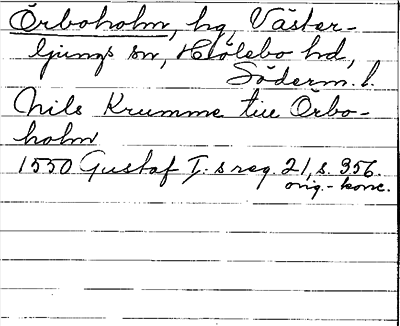 Örboholm, hg, Väster-
ljungs sn, Hölebo hd,
Söderm. l.
Nils Krumme till Örbo-
holm
1550 Gustaf I:s reg. 21, s. 356.
orig.-konc.